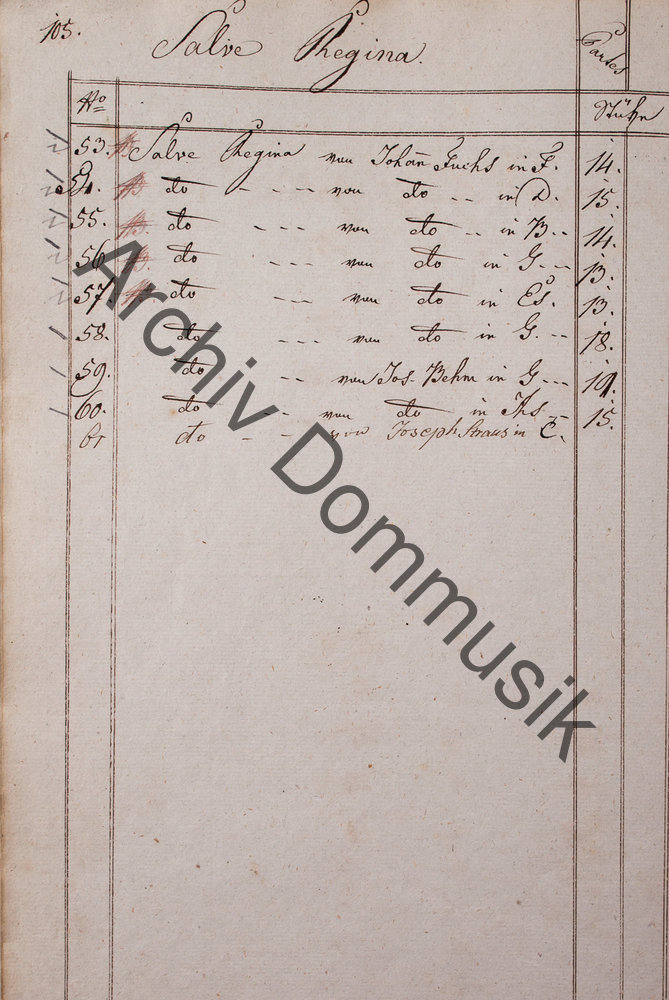 105.
Salve Regina.
Partes
No
53. Salve Regina von Johann Fuchs in F. 14.
54. do - - - von do - - in D. 15.
55. do - - - von do - - in B - - 14.
56. do - - - von do in G. - - 13.
57. do - - - von do in Es. 13.
58. do - - - von do in G. - - 18.
59. do - - von Jos. Behm in G - - - 19.
60. do - - von do in - - 15.
61 do - - - von Joseph Straus in C.
Archiv Dommusik